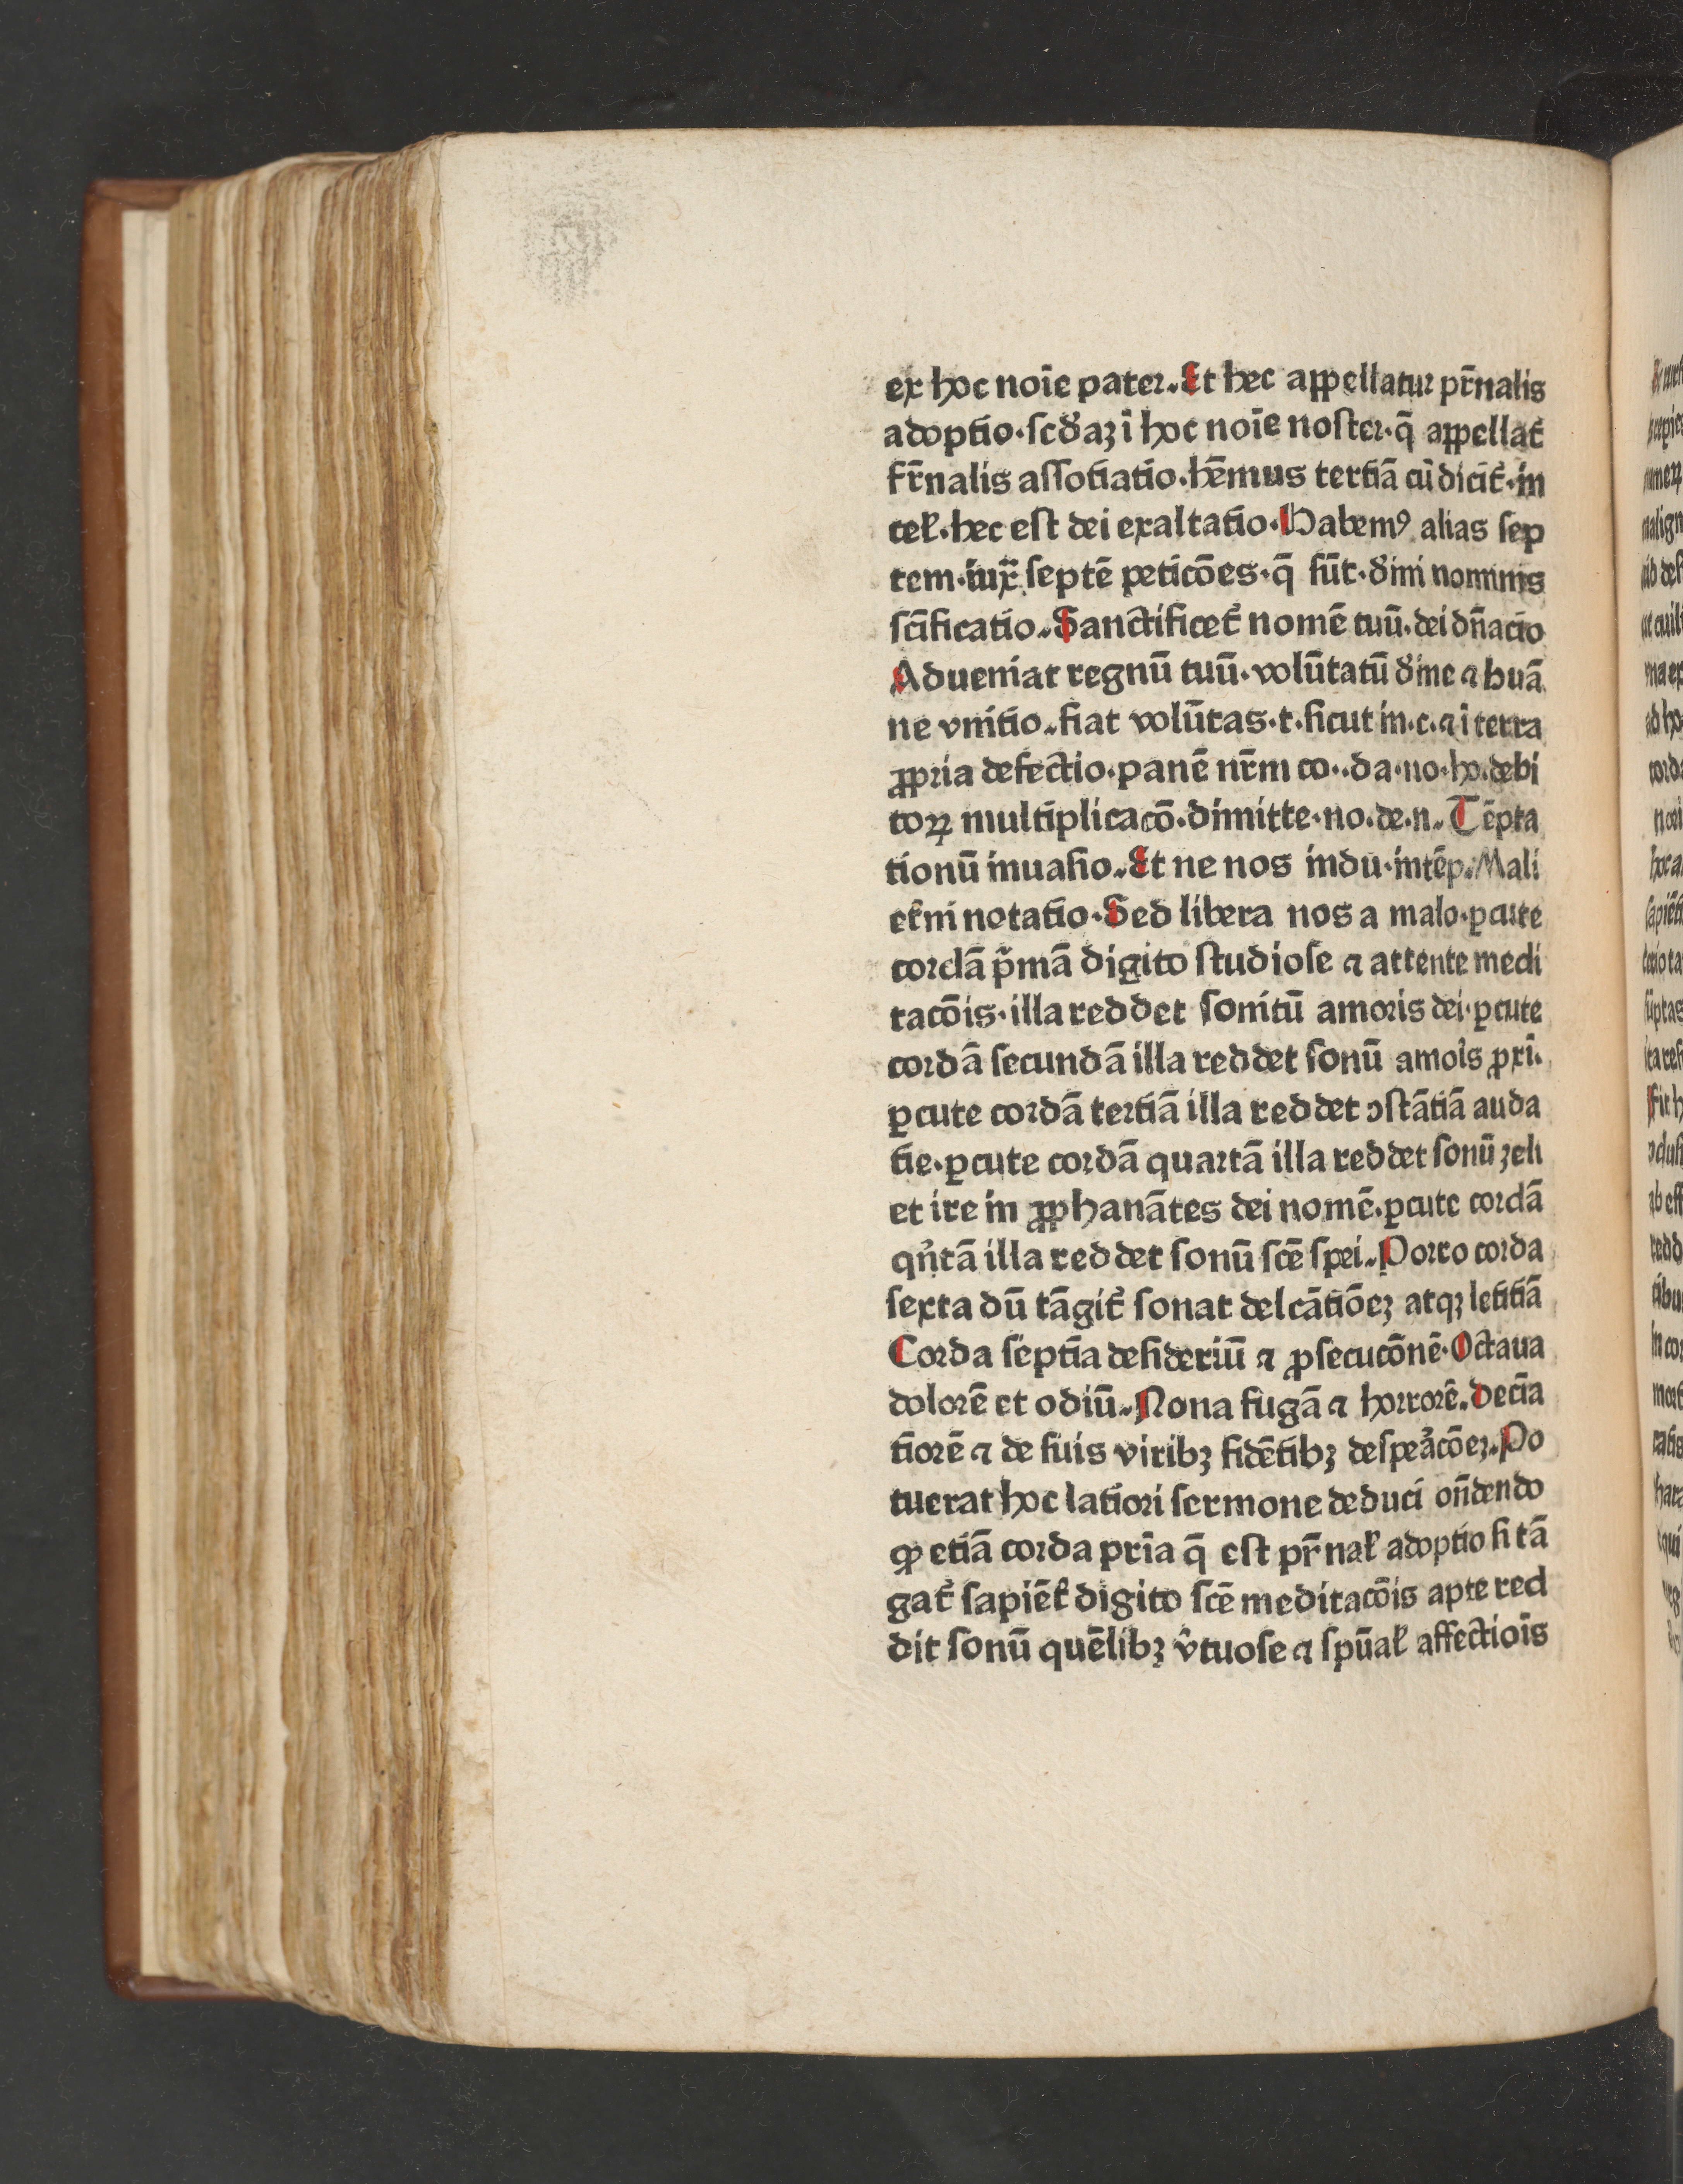 ex hoc noīe pater. Et hec appellatur pr̄nalis
adoptio · scđaꝫ ī hoc noīe noster · q̄ appellat᷑
fr̄nalis assotiatio · hēmus tertiā cū dicit᷑ · in
cel̄ · hec est dei exaltatio · Habemꝰ alias sep
tem · iux̄ septē peticōes · q̄ sūt · đini nominis
sc̄ificatio. Sanctificet᷑ nomē tuū · dei dn̄acio
Adueniat regnū tuū · volūtatū đine ⁊ huā
ne vnitio. fiat volūtas · t · sicut in · c · ⁊ ī terra
ꝓpria defectio · panē nr̄m co · · da · no · ho · debi
toꝝ multiplicacō · dimitte · no · de · n. Tēpta
tionū inuasio. Et ne nos indu · intēp. Mali
et᷑ni notatio · Sed libera nos a malo · ꝑcute
cordā p̄mā digito studiose ⁊ attente medi
tacōis · illa reddet sonitū amoris dei · ꝑcute
cordā secundā illa reddet sonū amoīs ꝓxī.
ꝑcute cordā tertiā illa reddet ↄstātiā auda
tie · ꝑcute cordā quartā illa reddet sonū ꝫeli
et ire in ꝓphanātes dei nomē · ꝑcute cordā
qn̄tā illa reddet sonū scē spei. Porro corda
sexta dū tāgit᷑ sonat delcātiōeꝫ atqꝫ letitiā
Corda septīa desideriū ⁊ ꝓsecucōnē · Octaua
dolorē et odiū. Nona fugā ⁊ horrorē. Decīa
tiorē ⁊ de suis viribꝫ fidētibꝫ despeācōeꝫ. Po
tuerat hoc latiori sermone deduci on̄dendo
ꝙ etiā corda pria q̄ est pr̄nal̄ adoptio si tā
gat᷑ sapiēt᷑ digito scē meditacōis apte red
dit sonū quēlibꝫ v̄tuose ⁊ spūal̄ affectiois